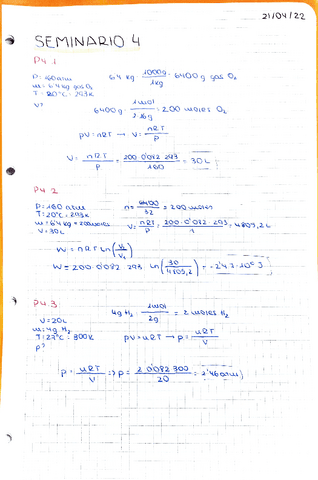 21/04/22
SEMINARIO 4
P4.1
P = 160 atm
m = 6'4 kg gas O₂
T = 20ºC = 293K
V?
6'4 kg · 1000g / 1kg = 6400 g O₂
6400 g · 1mol / 2·16g = 200 moles O₂
PV = nRT → V = nRT / P
V = nRT / P = 200·0'082·293 / 160 = 30L
P4.2
P = 160 atm
T = 20ºC = 293K
m = 6'4 kg = 200 moles
V = 30L
n = 6400 / 32 = 200 moles
V = nRT / P = 200·0'082·293 / 1 = 4805,2 L
W = nRT Ln (V₂ / V₁)
W = 200·0'082·293 Ln (30 / 4805,2) = -2'43·10⁶ J
P4.3
V = 20L
m = 4g H₂
T = 27ºC = 300K
P?
4g H₂ · 1mol / 2g = 2 moles H₂
PV = nRT → P = nRT / V
P = nRT / V => P = 2·0'082·300 / 20 = 2'46 atm